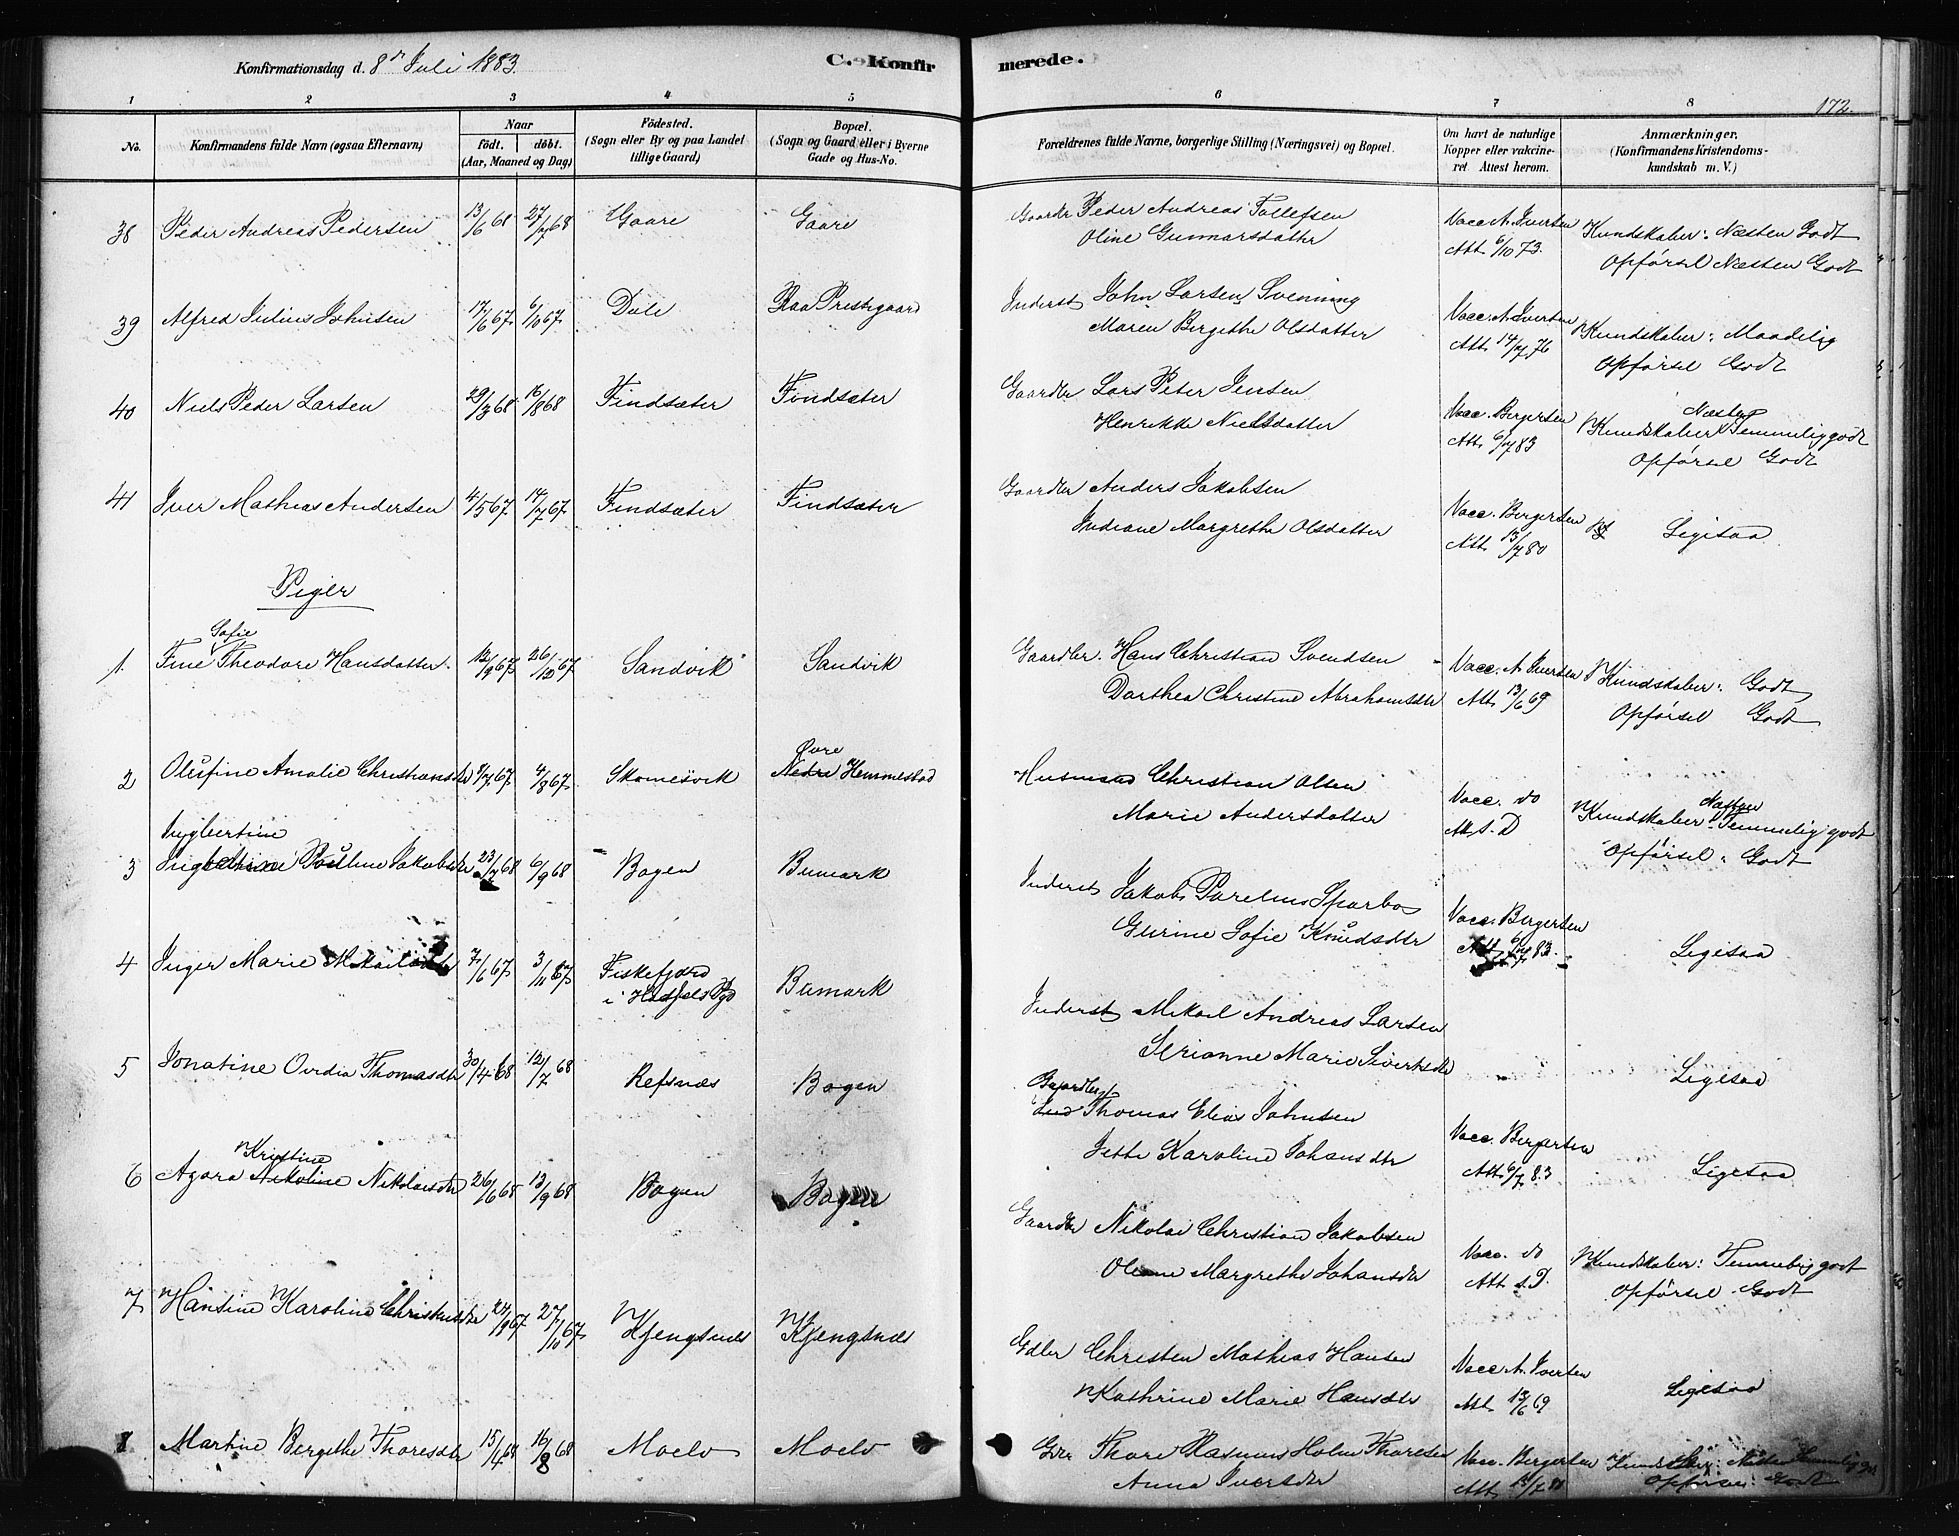 Konfirmationsdag d. 8de Juli 1883.
C. Konfir
merede.
172.
1 2 3 4 5 6 7 8
No.
Konfirmandens fulde Navn (ogsaa Efternavn)
Naar
födt. döbt.
(Aar, Maaned og Dag)
Födested.
(Sogn eller By og paa Landet
tillige Gaard)
Bopæl.
(Sogn og Gaard eller i Byerne
Gade og Hus-No.
Forældrenes fulde Navne, borgerlige Stilling (Næringsvei) og Bopæl.
Om havt de naturlige
Kopper eller vakcine-
ret Attest herom.
Anmærkninger.
(Konfirmandens Kristendoms-
kundskab m. V.)
38 Peder Andreas Pedersen 13/6 68 27/7 68 Gaare Gaare Gaardbr Peder Andreas Tollefsen Vacc. A. Ivertsen Kundskaber: Næsten Godt
Oline Gunnarsdatter Att. 6/10 73. Opførsel Næsten Godt
39 Alfred Julius Johnsen 17/6 67. 6/10 67. Dale Prestegaard Inderst John Larsen Svenning Vacc. A. Ivertsen Kundskaber: Maadelig
Maren Bergithe Olsdatter Att. 14/7 76 Opførsel Godt
40 Niels Peder Larsen 29/3 68 16/8 68 Findsæter Findsæter Gaardbr Lars Peter Jensen Vacc. Bergersen Kundskaber Næsten Temmelig godt
Henrikke Nielsdatter Att. 6/7 83 Opførsel Godt
41 Iver Mathias Andersen 4/5 67. 14/7 67. Findsæter Findsæter Gaardbr Anders Jakobsen Vacc. Bergersen Ligesaa
Indiane Margrethe Olsdatter Att. 13/7 80
Piger
Sofie
1. Fine Theodore Hansdatter 12/9 67 26/10 67 Sandvik Sandvik Gaardbr. Hans Christian Svendsen Vacc. A. Ivertsen Kundskaber: Godt
Dorthea Christine Abrahamsdtr Att. 13/6 69 Opførsel Godt
2 Olufine Amalie Christiansdtr /7 67. 4/8 67. Skomesvik Nedre Øvre Hemmestad Husmand Christian Olsen Vacc. do Kundskaber: Næsten Temmelig godt
Marie Andersdatter Att. s. D Opførsel: Godt
Ingbertine
3 Pauline Jakobsdtr 23/7 68 6/9 68 Bogen Bumark Inderst Jakob Parelius Sparbo Vacc. Bergersen Ligesaa
Gurine Sofie Knudsdtr Att. 6/7 83.
4 Inger Marie 7/6 67 3/11 67 Fiskefjord Bumark Inderst Mikael Andreas Larsen Ligesaa
i Hadsels Pgd Serianne Marie Sivertsdtr
5 Jonatine Ovidia Thomasdtr 30/4 68 12/7 68 Refsnæs Bogen Gaardbr Ind Thomas Elias Johnsen Vacc. Bergersen Ligesaa
Jette Karoline Johansdtr Att. 6/7 83
Kristine
6 Agora Nikoline Nikolaisdtr 26/6 68 13/9 68 Bogen Bogen Gaardbr Nikolai Christian Jakobsen Vacc. do Kundskaber: Temmelig godt
Margrethe Johansdtr Att. s. D. Opførsel Godt
7 Hansine Karoline Christensdtr 24/9 67 27/10 67 Kjengsnes Kjengsnes Gdbr Christen Mathias Hansen Vacc. A. Ivertsen Ligesaa
Kathrine Marie Hansdtr Att. 13/6 69
8 Martine Bergithe Thoresdtr 15/4 68 16/8 68 Moelv Moelv Gbr Thore Rasmus Holm Thoresen Vacc. Bergersen Kundskaber: Næsten Temmelig
Anna Iversdtr Opførsel: Godt